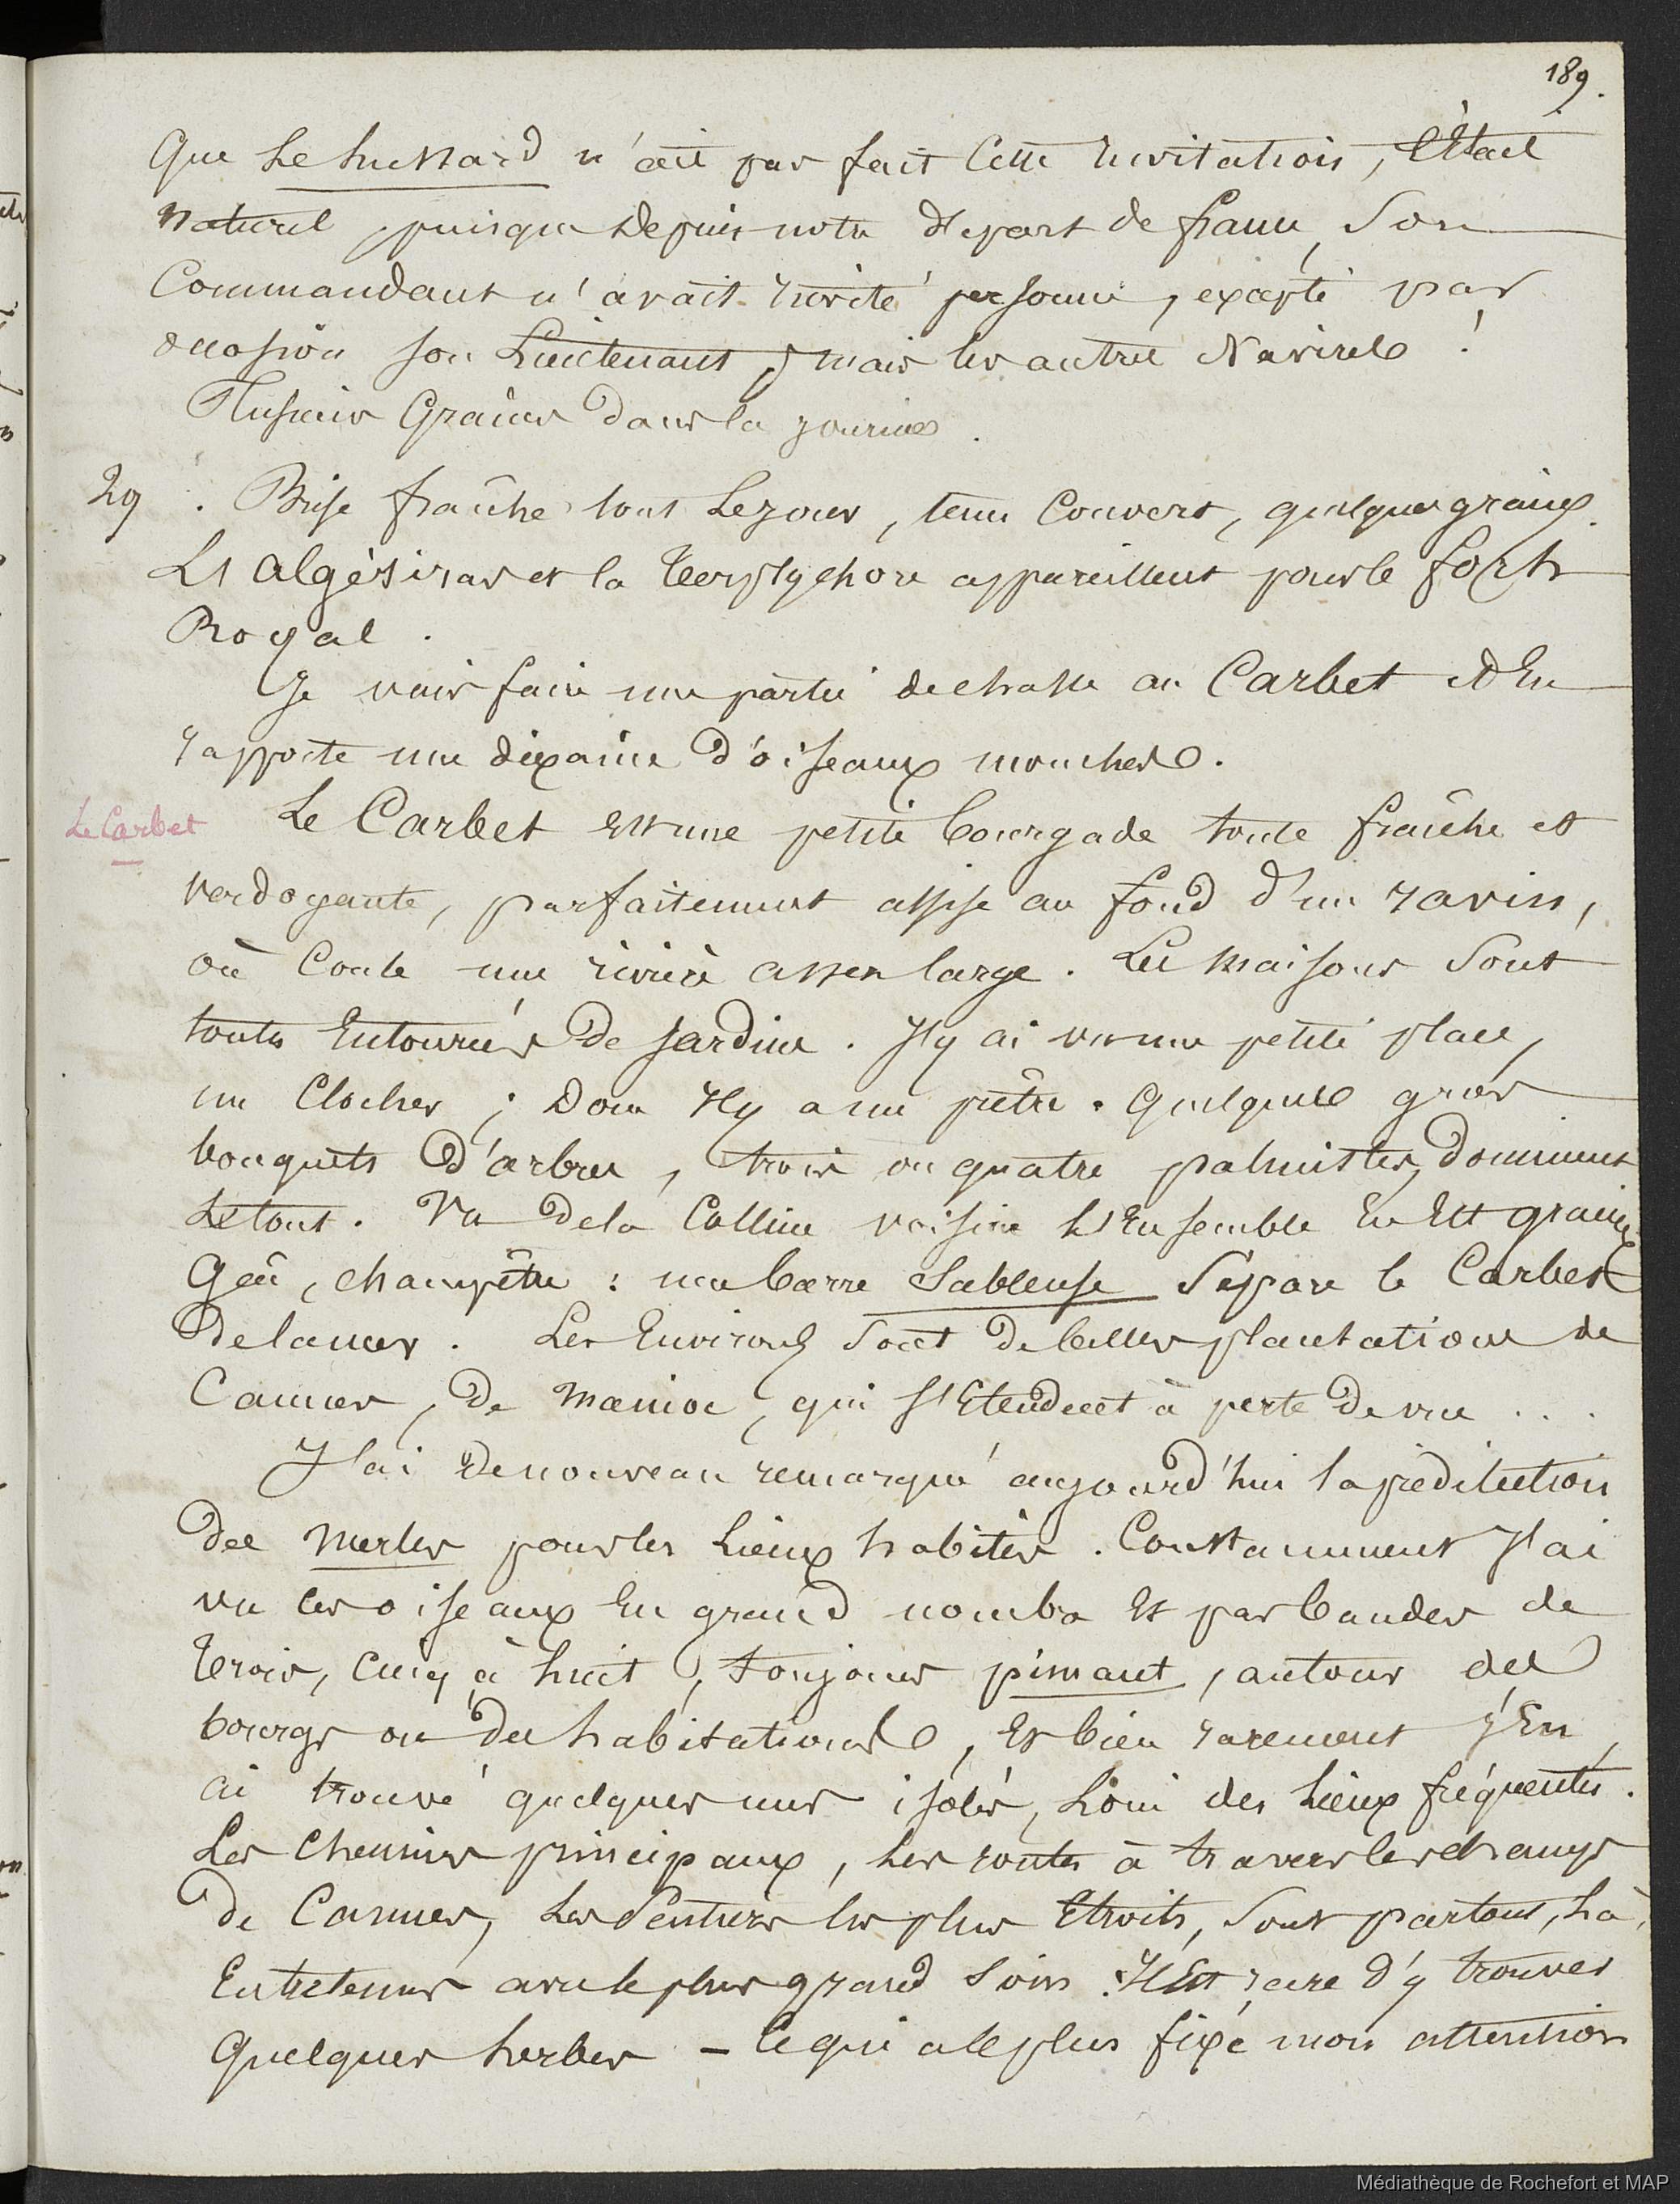 189.
Que Le hussard n'ait pas fait Cette Invitation, C'Etait
Naturel, puisque depuis notre départ de france, Son
Commandant n'avait Invité personne, excepté par
occasion son Lieutenant; mais les autres Navires !
Plusieurs Grains dans la journée.
29 . Brise fraîche tout Le jour, tems Couvert, quelques grains.
L'Algésiras et la Terpsychore appareillent pour le fort
Royal.
Je vais faire une partie de chasse au Carbet et En
rapporte une dixaine d'oiseaux mouches.
Le Carbet
Le Carbet Est une petite bourgade toute fraîche et
verdoyante, parfaitement assise au fond d'un ravin,
où Coule une rivière assez large. Les Maisons Sont
toutes Entourées De Jardins. J'y ai vu une petite place,
un Clocher ; Donc Il y a un prêtre. Quelques gros
bouquets D'arbres, trois ou quatre palmistes, Dominent
Le tout. Vu De la Colline voisine L'Ensemble En Est gracieux
Gai, champêtre : une barre Sableuse Sépare le Carbet
De la mer. Les Environs Sont De belles plantations de
Cannes, De Manioc, qui S'Etendent à perte De vue ...
J'ai De nouveau remarqué aujourd'hui la prédilection
Des Merles pour les Lieux habités. Constamment J'ai
vu ces oiseaux En grand nombre Et par bandes de
trois, cinq à huit, toujours pimant, autour des
bourgs ou Des habitations, Et bien rarement j'En
ai trouvé quelques uns isolés, Loin des Lieux fréquentés.
Les Chemins principaux, Les routes à travers les champs
De Cannes, Les Sentiers les plus Etroits, Sont partout, Là,
Entretenus avec le plus grand Soin. Il Est rare d'y trouver
Quelques herbes – Ce qui a le plus fixé mon attention
Médiathèque de Rochefort et MAP